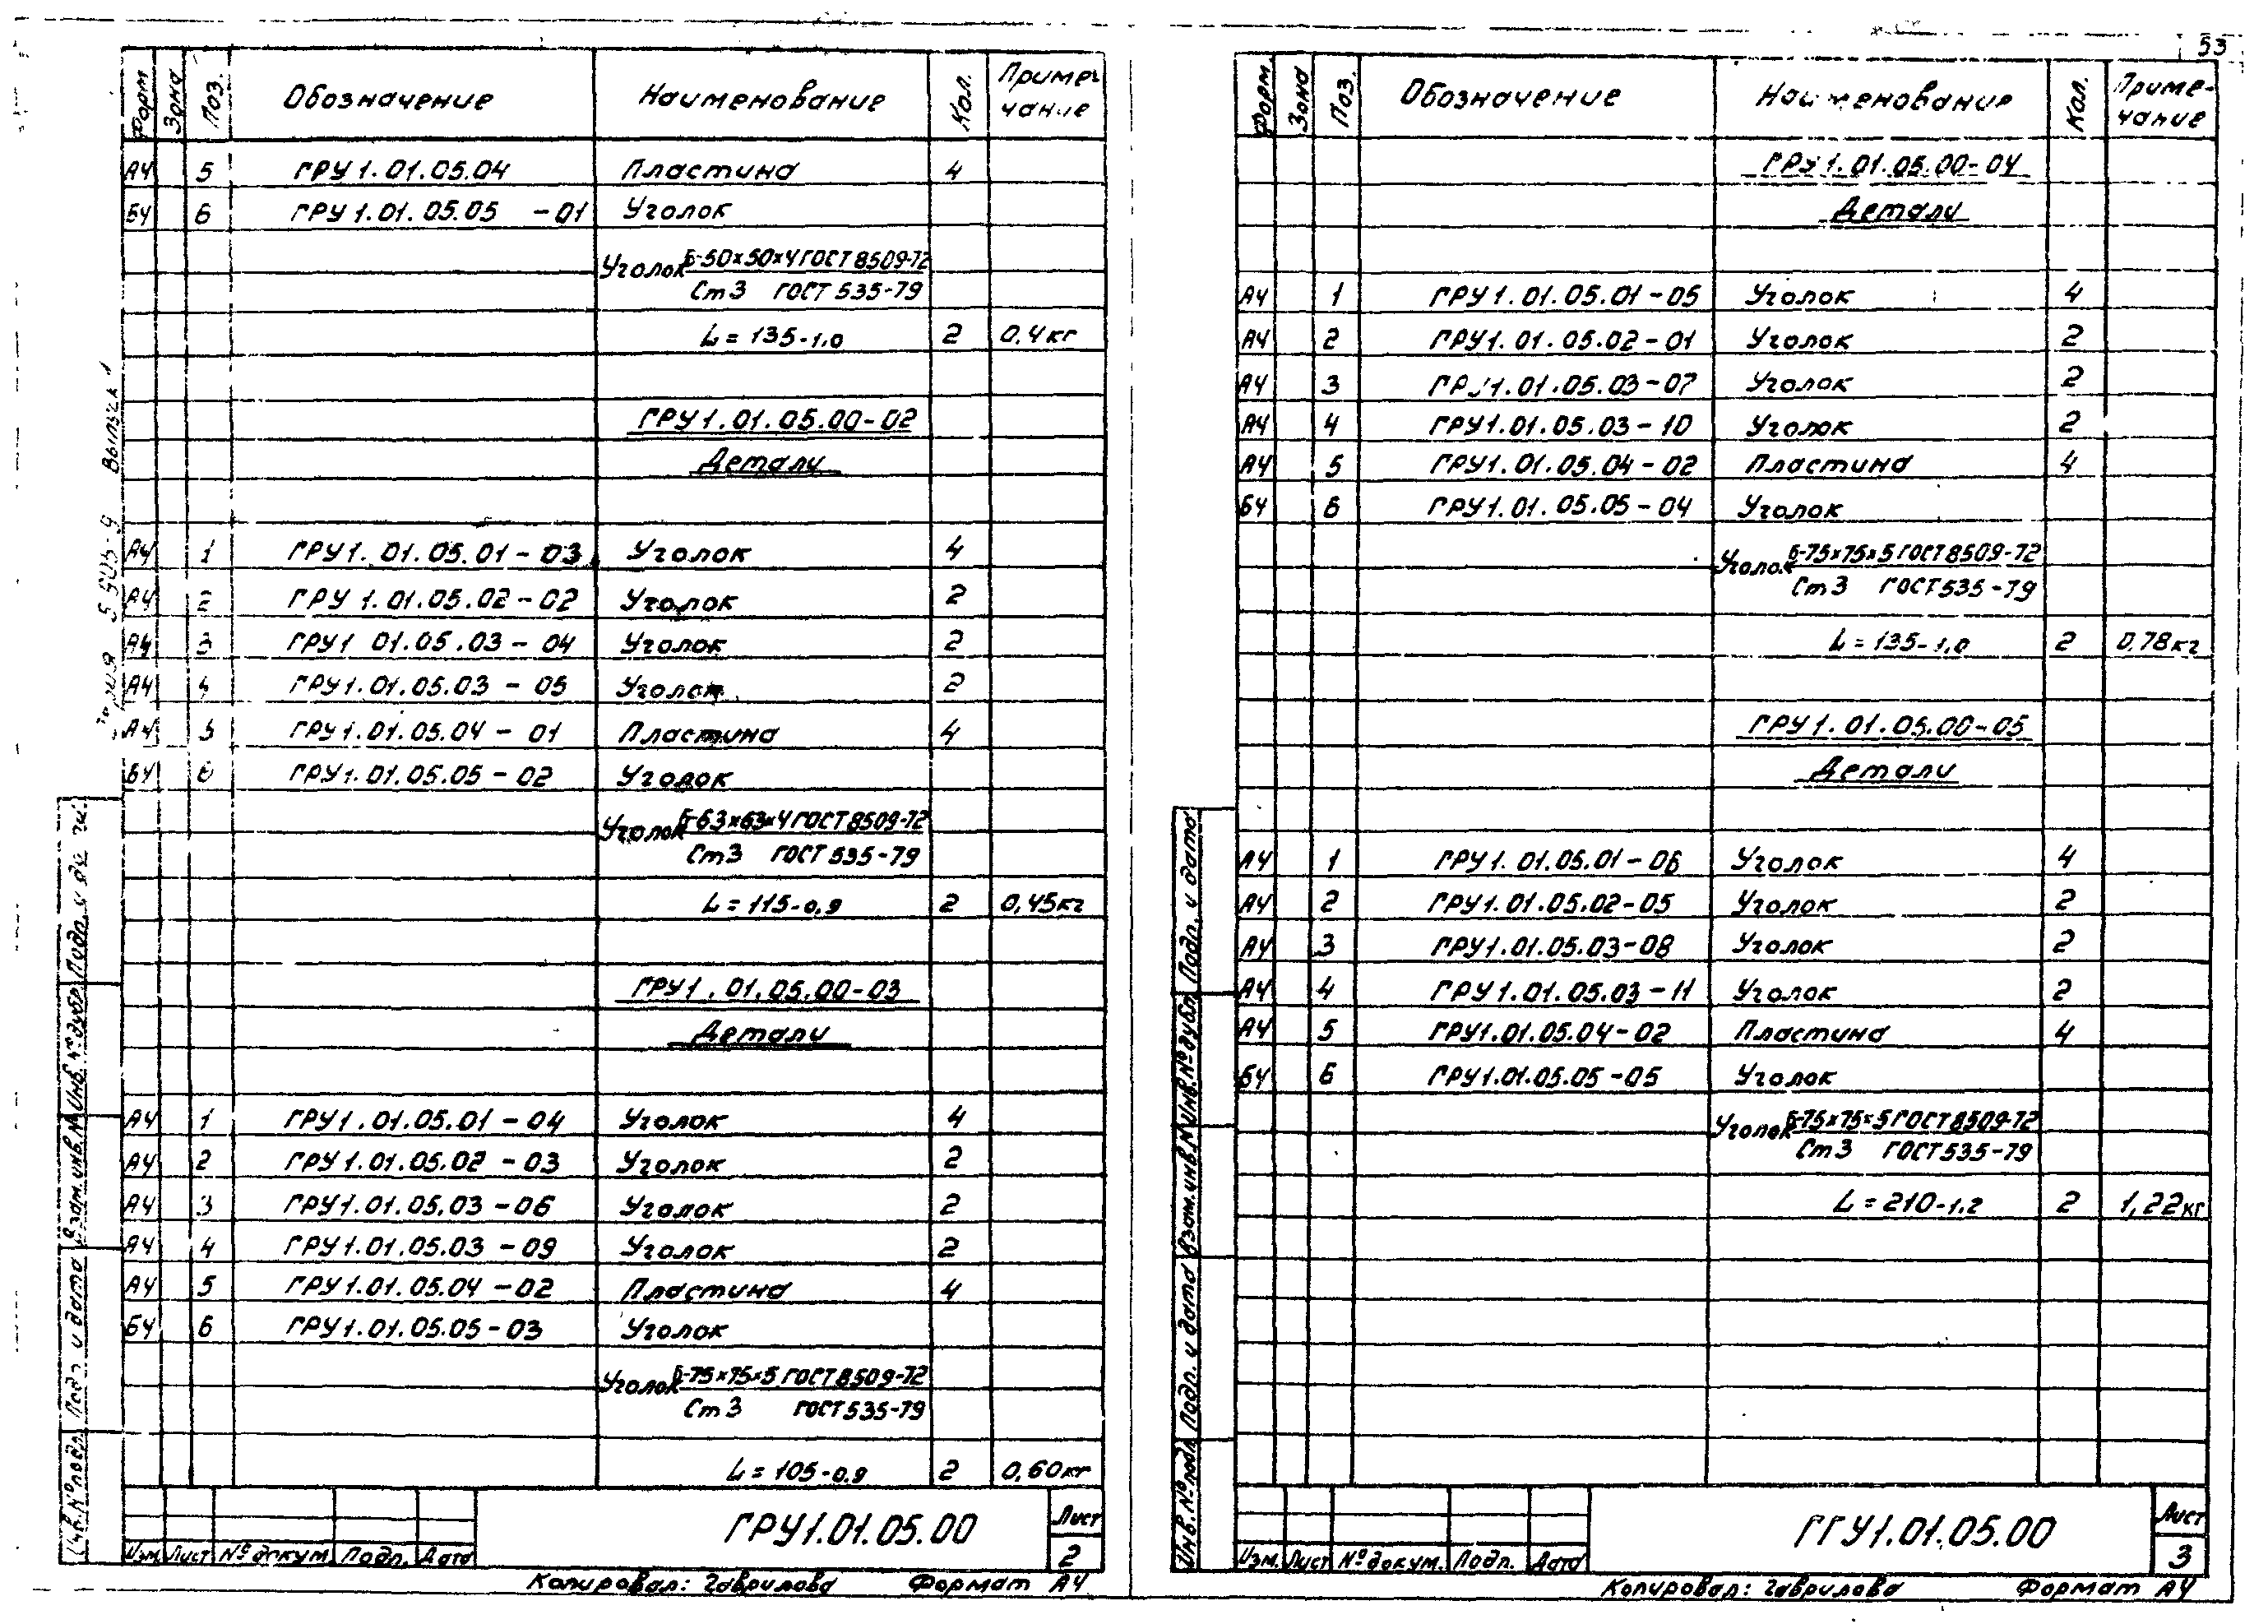 53
Форм. Зона Поз. Обозначение Наименование Кол. Примечание
А4 5 ГРУ1.01.05.04 Пластина 4
БЧ 6 ГРУ1.01.05.05 -01 Уголок
Уголок Б-50×50×4 ГОСТ 8509-72
Ст3 ГОСТ 535-79
L = 135-1,0 2 0,4кг
ГРУ1.01.05.00-02
Детали
А4 1 ГРУ1.01.05.01-03 Уголок 4
А4 2 ГРУ1.01.05.02-02 Уголок 2
А4 3 ГРУ1 01.05.03-04 Уголок 2
А4 4 ГРУ1.01.05.03-05 Уголок 2
А4 5 ГРУ1.01.05.04-01 Пластина 4
БЧ 6 ГРУ1.01.05.05-02 Уголок
Уголок Б-63×63×4 ГОСТ 8509-72
Ст3 ГОСТ 535-79
L = 115-0,9 2 0,45кг
ГРУ1.01.05.00-03
Детали
А4 1 ГРУ1.01.05.01-04 Уголок 4
А4 2 ГРУ1.01.05.02-03 Уголок 2
А4 3 ГРУ1.01.05.03-06 Уголок 2
А4 4 ГРУ1.01.05.03-09 Уголок 2
А4 5 ГРУ1.01.05.04-02 Пластина 4
БЧ 6 ГРУ1.01.05.05-03 Уголок
Уголок Б-75×75×5 ГОСТ 8509-72
Ст3 ГОСТ 535-79
L = 105-0,9 2 0,60кг
Выпуск 1
Инв.№подл. Подп. и дата Взам.инв.№ Инв.№дубл. Подп. и дата
Изм. Лист №докум. Подп. Дата
ГРУ1.01.05.00
Лист
2
Копировал: Гаврилова Формат А4
Форм. Зона Поз. Обозначение Наименование Кол. Примечание
ГРУ1.01.05.00-04
Детали
А4 1 ГРУ1.01.05.01-05 Уголок 4
А4 2 ГРУ1.01.05.02-01 Уголок 2
А4 3 ГРУ1.01.05.03-07 Уголок 2
А4 4 ГРУ1.01.05.03-10 Уголок 2
А4 5 ГРУ1.01.05.04-02 Пластина 4
БЧ 6 ГРУ1.01.05.05-04 Уголок
Уголок Б-75×75×5 ГОСТ 8509-72
Ст3 ГОСТ 535-79
L = 135-1,0 2 0,78кг
ГРУ1.01.05.00-05
Детали
А4 1 ГРУ1.01.05.01-06 Уголок 4
А4 2 ГРУ1.01.05.02-05 Уголок 2
А4 3 ГРУ1.01.05.03-08 Уголок 2
А4 4 ГРУ1.01.05.03-11 Уголок 2
А4 5 ГРУ1.01.05.04-02 Пластина 4
БЧ 6 ГРУ1.01.05.05-05 Уголок
Уголок Б-75×75×5 ГОСТ 8509-72
Ст3 ГОСТ 535-79
L = 210-1,2 2 1,22кг
Инв.№подл. Подп. и дата Взам.инв.№ Инв.№дубл. Подп. и дата
Изм. Лист №докум. Подп. Дата
ГГУ1.01.05.00
Лист
3
Копировал: Гаврилова Формат А4